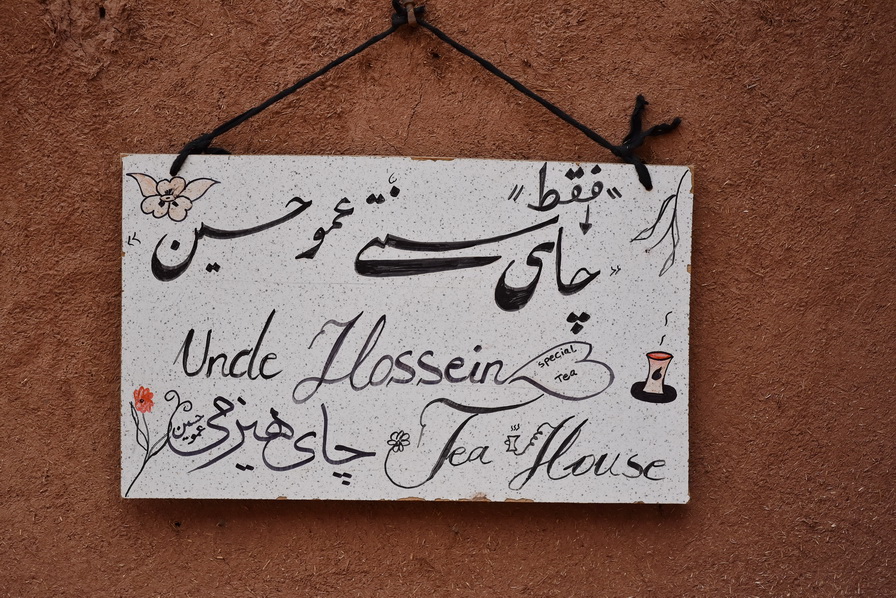 "فقط"
«چای سنتی عمو حسین»
Uncle Hossein
special
Tea
چای هیزمی
عمو حسین
Tea House